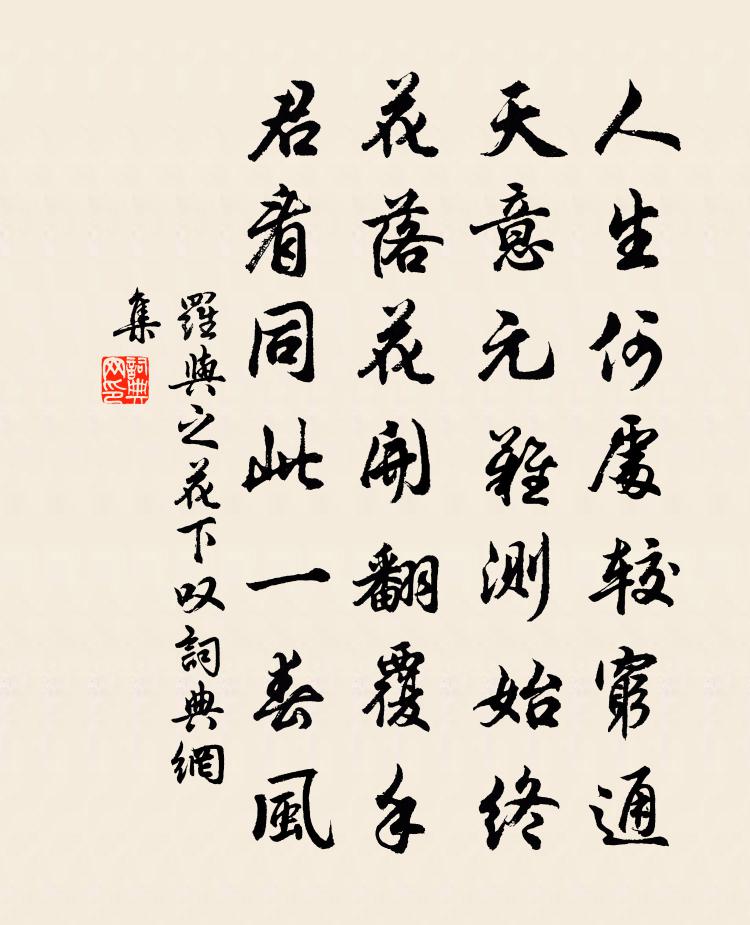 人生何處较窮通
天意元難測始终
花落花開翻覆手
君看同此一春風
羅與之花下叹詞典網
集
詞典网印